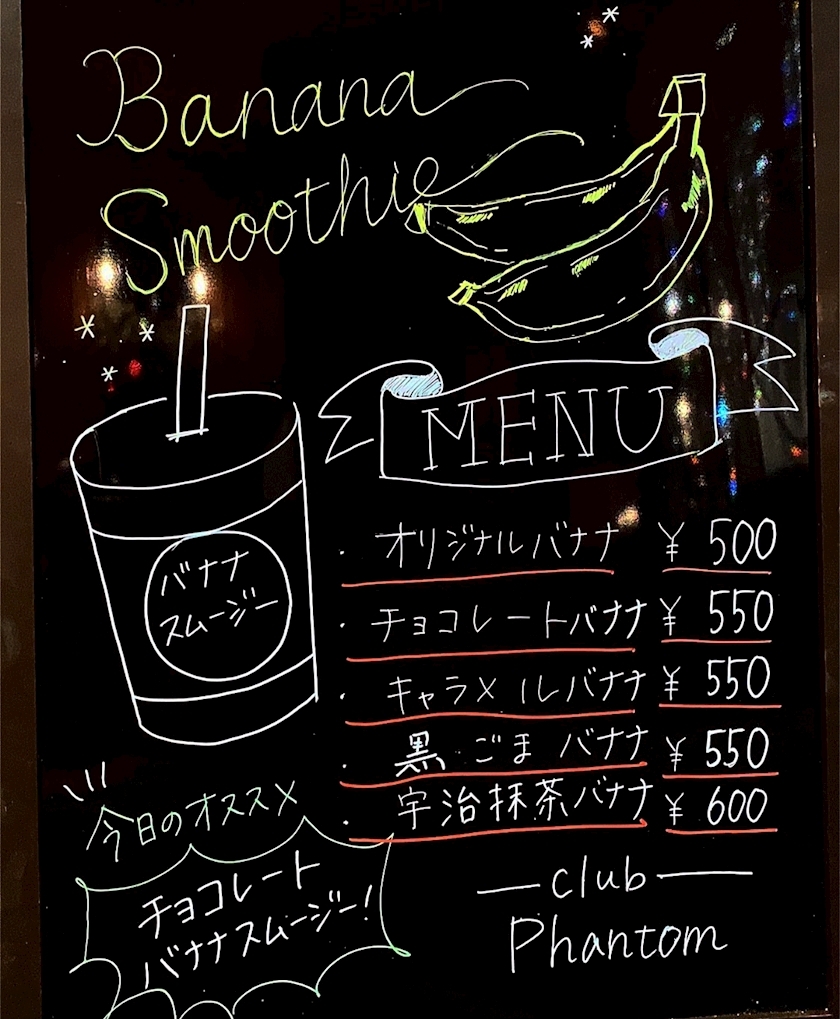 Banana
Smoothie
MENU
バナナ
スムージー
・オリジナルバナナ ¥500
・チョコレートバナナ ¥550
・キャラメルバナナ ¥550
・黒ごまバナナ ¥550
・宇治抹茶バナナ ¥600
今日のオススメ
チョコレート
バナナスムージー!
club
Phantom